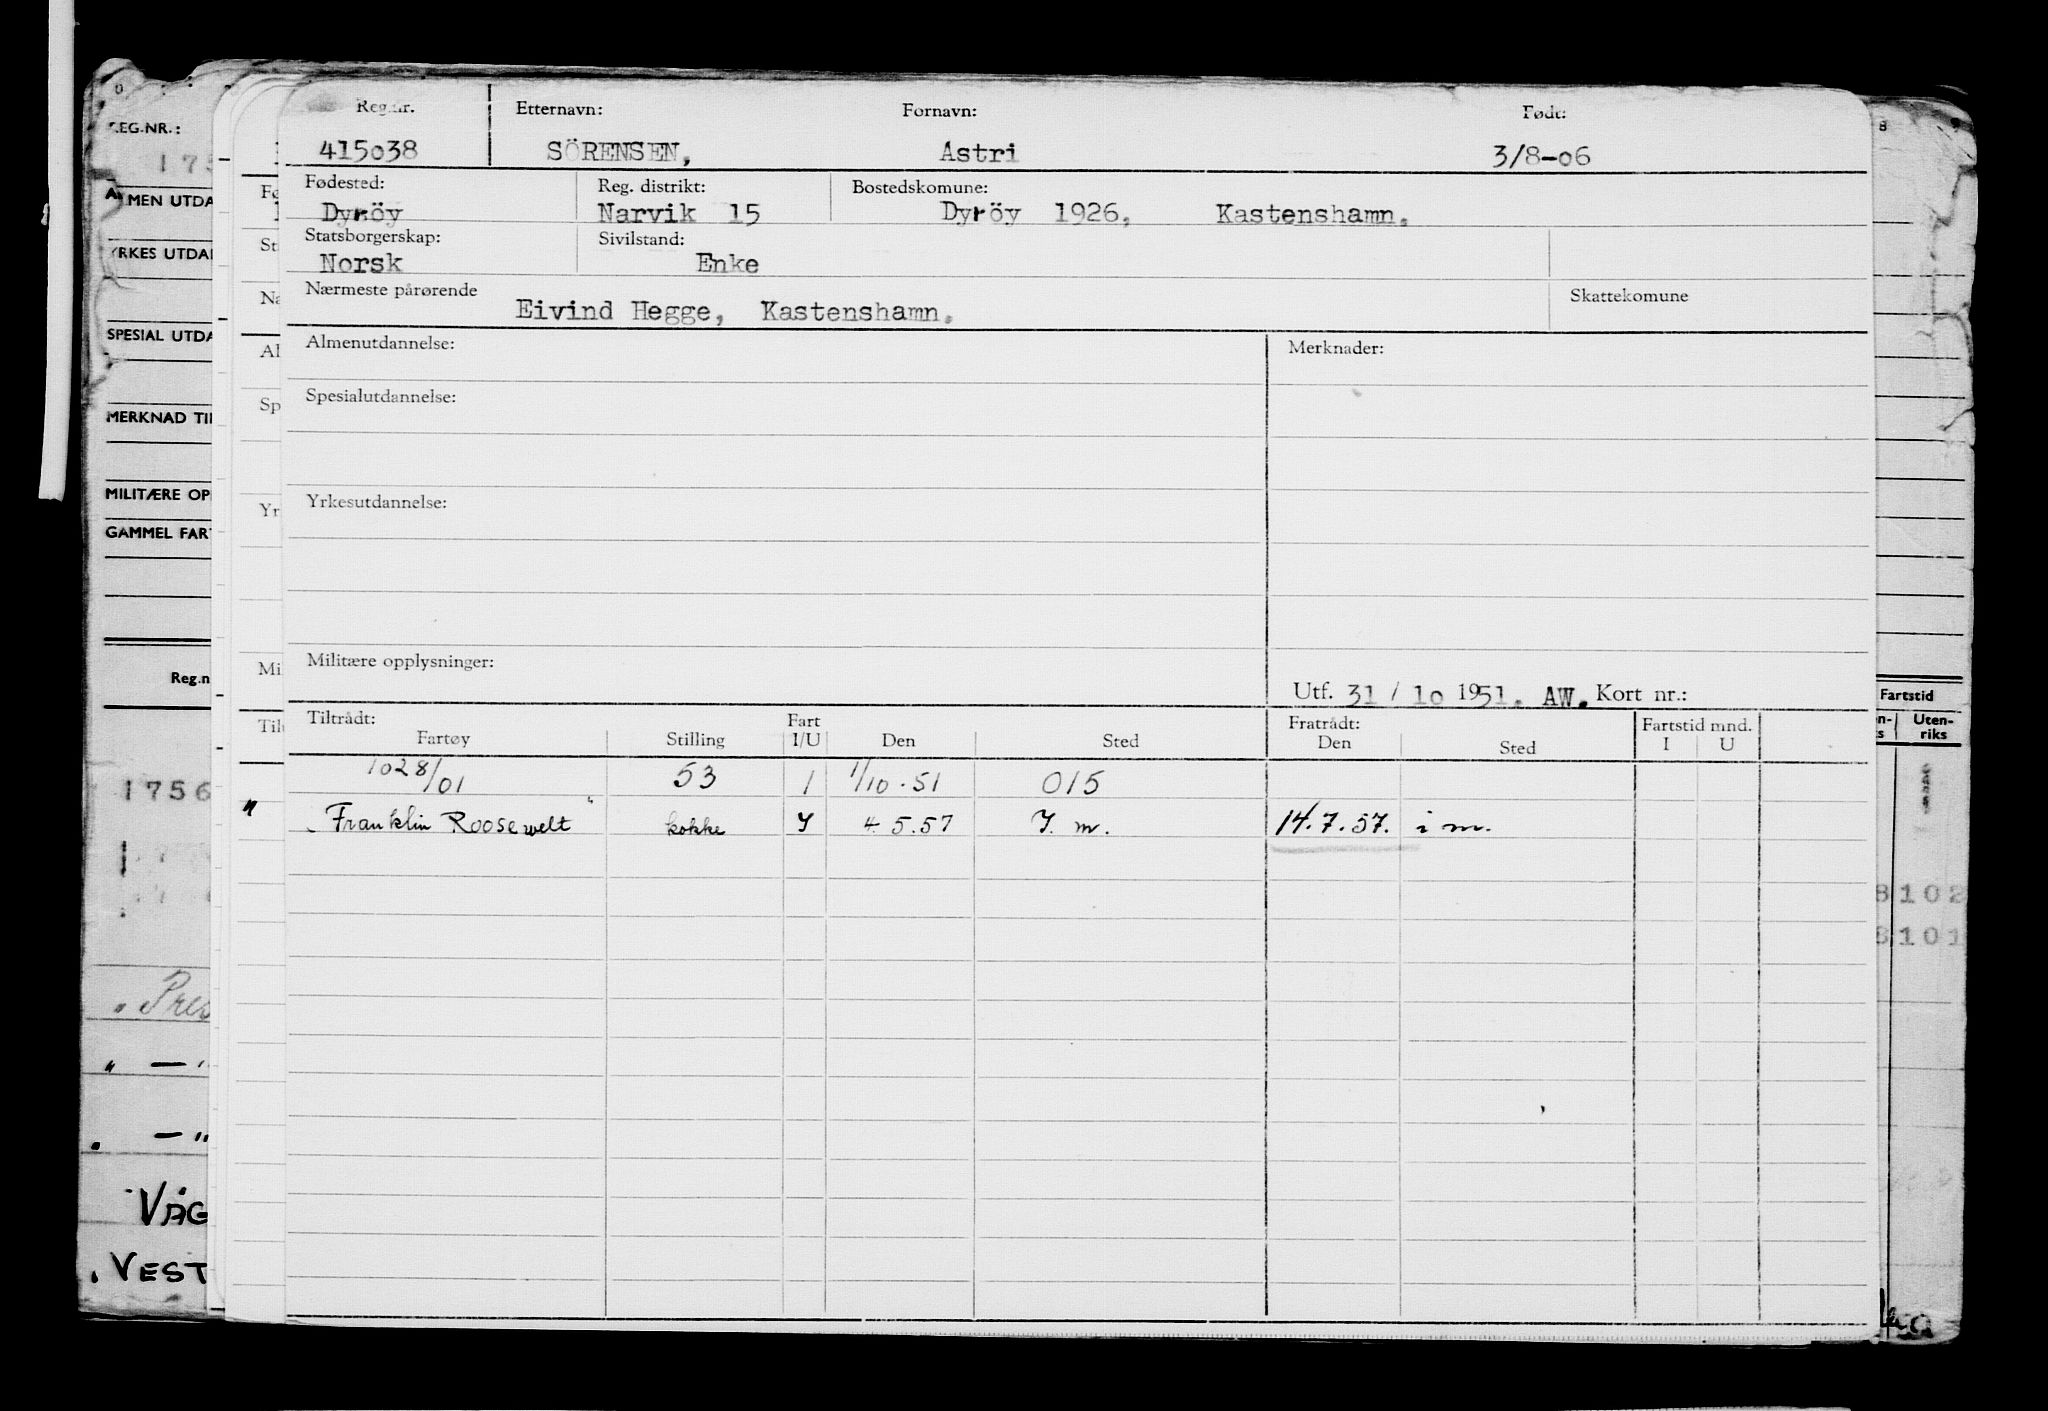 Reg.nr. Etternavn: Fornavn: Født:
415o38 SÖRENSEN, Astri 3/8-o6
Fødested: Reg. distrikt: Bostedskomune:
Dyröy Narvik 15 Dyröy 1926, Kastenshamn.
Statsborgerskap: Sivilstand:
Norsk Enke
Nærmeste pårørende Skattekomune
Eivind Hegge, Kastenshamn.
Almenutdannelse: Merknader:
Spesialutdannelse:
Yrkesutdannelse:
Militære opplysninger:
Utf. 31 / 1o 1951. AW. Kort nr.:
Tiltrådt: Fart Fratrådt: Fartstid mnd.
Fartøy Stilling I/U Den Sted Den Sted I U
1028/01 53 1 1/10.51 015
" Franklin Roosewelt " kokke Y 4.5.57 Y. m. 14.7.57. i m.
REG.NR.:
175
ALMEN UTDA
YRKES UTDA
SPESIAL UTDA
MERKNAD TI
MILITÆRE OP
GAMMEL FAR
Reg.n
1756
" Pres
" — "
. — "
VÅG
. VEST
Fø
St
Na
Al
Sp
Yr
Mi
Til
8
Fartstid
Uten-
riks
8102
8101